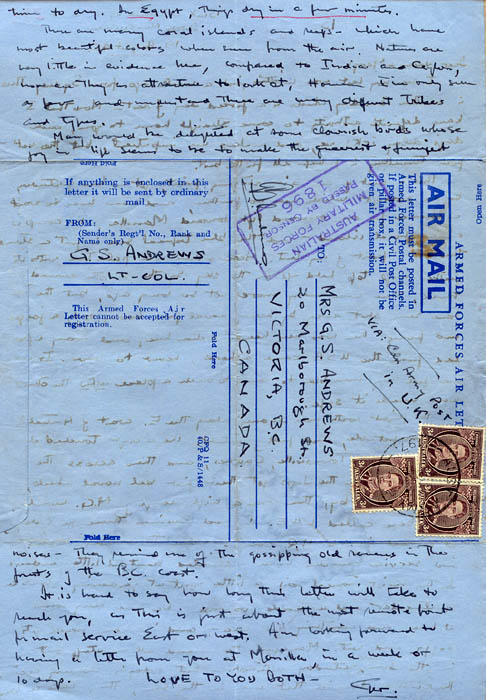 time to dry. In Egypt, things dry in a few minutes.
There are many coral islands and reefs - which have
most beautiful colors when seen from the air. Natives are
very little in evidence here, compared to India and Ceylon,
nor are they as attractive to look at, I've only seen
a few and understand there are many different tribes
and types.
Mary would be delighted at some clownish birds whose
joy in life seems to be to make the queerest & funniest
Fold Here
If anything is enclosed in this
letter it will be sent by ordinary
mail.
FROM:
(Sender's Regt'l No., Rank and
Name only)
G.S. ANDREWS
LT-COL.
This Armed Forces Air
Letter cannot be accepted for
registration.
Fold Here
CFPQ 11
40/P & S/1448
Open Here
ARMED FORCES AIR LET
AIR MAIL
This letter must be posted in
Armed Forces Postal channels.
If posted in a Civil Post Office
or pillar box, it will not be
given air transmission.
VIA: Can Army Post
in UK
AUSTRALIAN
MILITARY FORCES
PASSED BY CENSOR
1896
TO:
MRS G.S. ANDREWS
20 Marlborough St.
VICTORIA, B.C.
CANADA
Fold Here
noises - They remind me of the gossipping old ravens in the
forests of the B.C. coast.
It is hard to say how long this letter will take to
reach you, as this is just about the most remote point
for mail service East or West. Am looking forward to
having a letter from you at Manilla, in a week or
10 days. LOVE TO YOU BOTH -
Ger.